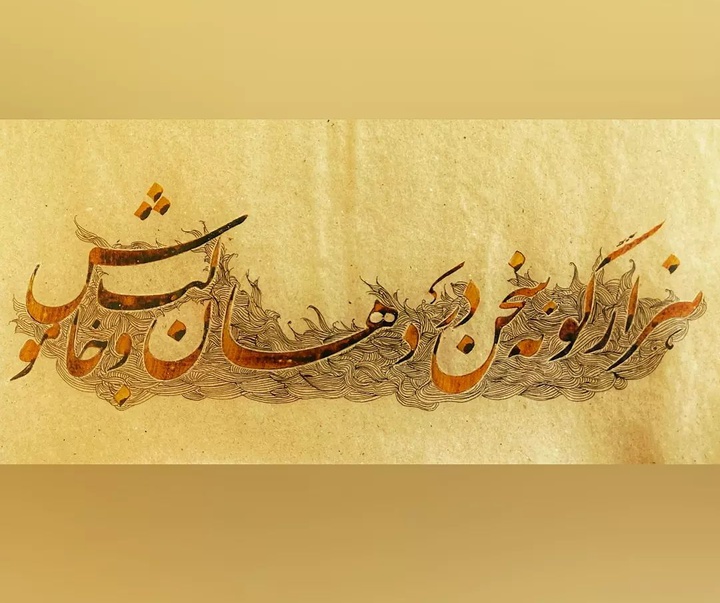 هزار گونه سخن در دهان و لب خاموش